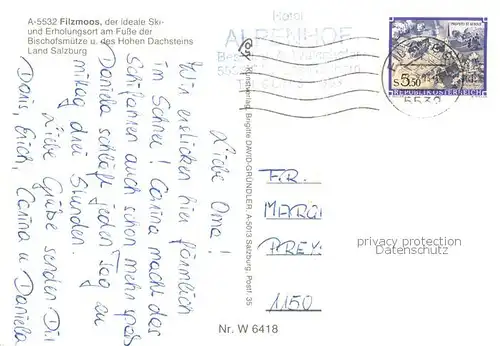 A-5532 Filzmoos, der ideale Ski-
und Erholungsort am Fuße der
Bischofsmütze u. des Hohen Dachsteins
Land Salzburg
Liebe Oma!
Wir ersticken hier förmlich
im Schnee! Carina macht das
Schifahren auch schon mehr Spaß
Daniela schläft jeden Tag am
mittag drei Stunden.
Liebe Grüße senden Dir
Doris, Erich, Carina u Daniela
Kunstverlag Brigitte DAVID-GRÜNDLER, A-5013 Salzburg, Postf. 35
Hotel
ALPENHOF
5532
S 5.50
REPUBLIK ÖSTERREICH
FR.
MARGI
PREY
1150
privacy protection
Datenschutz
Nr. W 6418